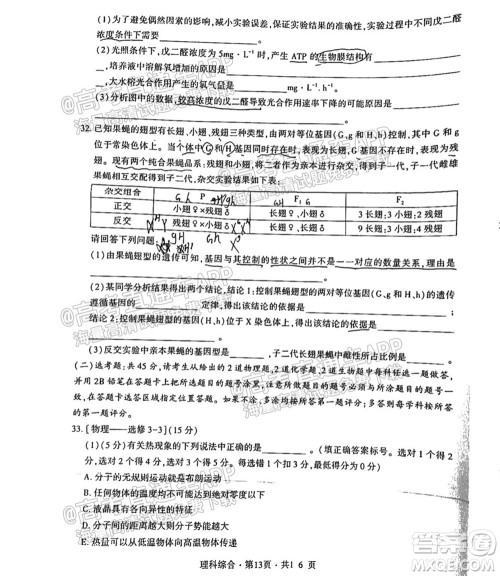 (1)为避免偶然因素的影响,减小实验误差,保证实验结果的可靠性,实验过程中不同戊二醛
浓度条件下
(2)光照条件下,戊二醛浓度为5mg·L⁻¹时,产生ATP的生物膜结构有
,培养液中溶解氧增加的原因是
,大水榕光合作用产生的氧气增加的原因是
(3)分析图中的数据,较高浓度的戊二醛导致光合作用速率下降的可能原因是
32.已知果蝇的翅型有长翅、小翅、残翅三种类型,由两对等位基因(G、g和H、h)控制,其中G和g
位于常染色体上。当个体中G和H基因同时存在时,表现为长翅,基因G不存在时,表现为残
翅。现有两个纯合果蝇品系:残翅和小翅,将二者作为亲本进行杂交,得到子一代,子一代雌雄
果蝇相互交配得到子二代,杂交组合及结果如下表:
杂交组合 P F₁ F₂
正交 小翅♀×残翅♂ 长翅♀、小翅♂ 3长翅:3小翅:2残翅
反交 残翅♀×小翅♂ 长翅♀、长翅♂ 9长翅:3小翅:4残翅
请回答下列问题:
(1)由果蝇翅型的遗传可知,基因与其控制的性状之间并不是一一对应的数量关系,理由是
(2)某同学分析杂交结果得出两个结论。结论1:控制果蝇翅型的两对等位基因(G、g和H、h)的遗传
遵循基因的 定律,得出该结论的依据是
结论2:控制果蝇翅型的基因(H、h)位于X染色体上,得出该结论的依据是
(3)反交实验中亲本果蝇的基因型是 ,子二代长翅果蝇中雌性所占比例为
(二)选考题:共45分。请考生从给出的2道物理题、2道化学题、2道生物题中每科任选一题作答,
并用2B铅笔在答题卡上把所选题目的题号涂黑。注意所做题目的题号必须与所涂题目的题号一致,在
答题卡选答区域指定位置答题。如果多做,则每学科按所做的第一题计分。
33.[物理——选修3-3](15分)
(1)(5分)有关热现象的下列说法中正确的是 。(填正确答案标号。选对1个得2
分,选对2个得4分,选对3个得5分。每选错1个扣3分,最低得分为0分)
A.分子的无规则运动就是布朗运动
B.任何物体的温度均不可能达到绝对零度
C.液晶具有流动性,光学性质各向异性
D.分子间的距离越大则分子势能越大
E.热量可以从低温物体向高温物体传递
理科综合·第13页·共16页